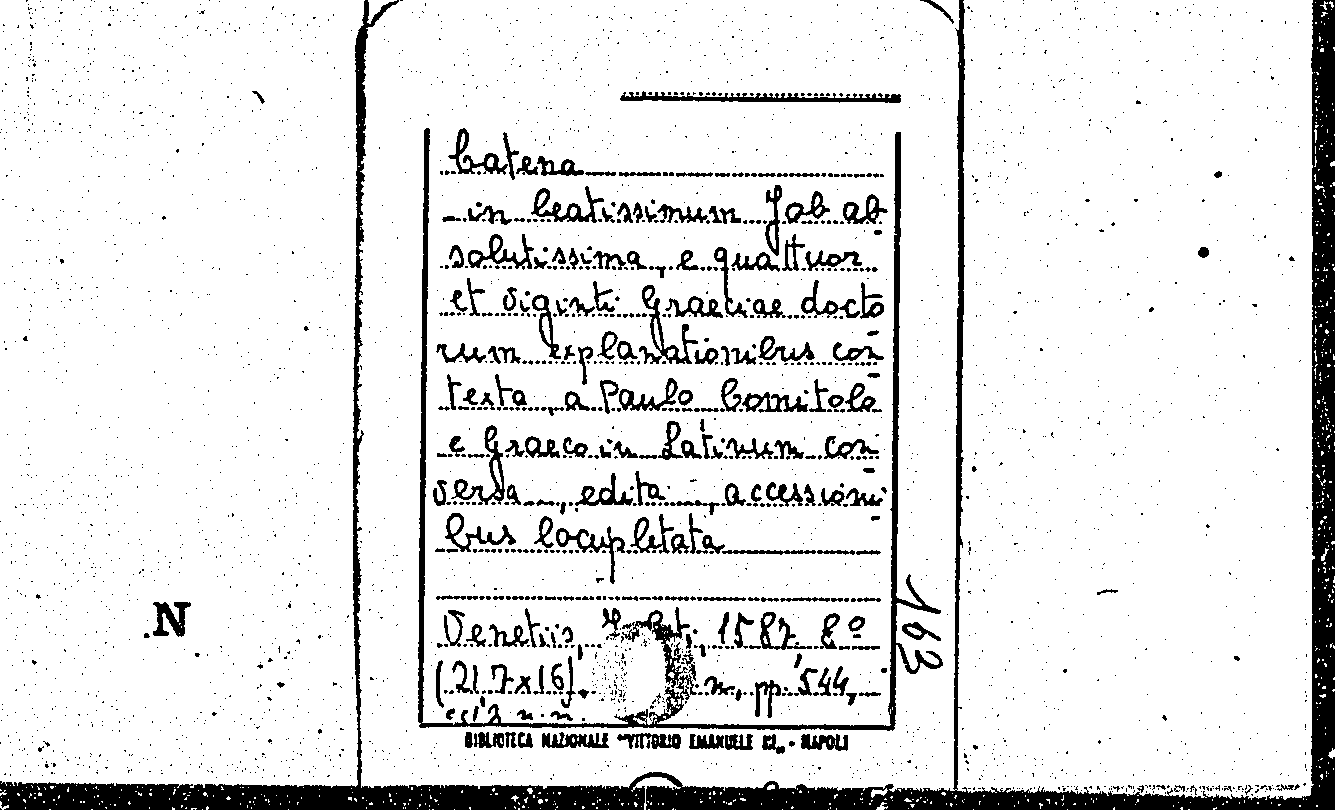 Catena
in beatissimum Job ab-
solutissima, e quattuor
et viginti Graeciae docto-
rum explanationibus con-
texta, a Paulo Comitolo
e Graeco in Latinum con-
versa, edita, accessioni-
bus locupletata
Venetiis, 1587. 8º
(21,7x16). n., pp. 544,
n.n.
BIBLIOTECA NAZIONALE "VITTORIO EMANUELE III" - NAPOLI
163
N